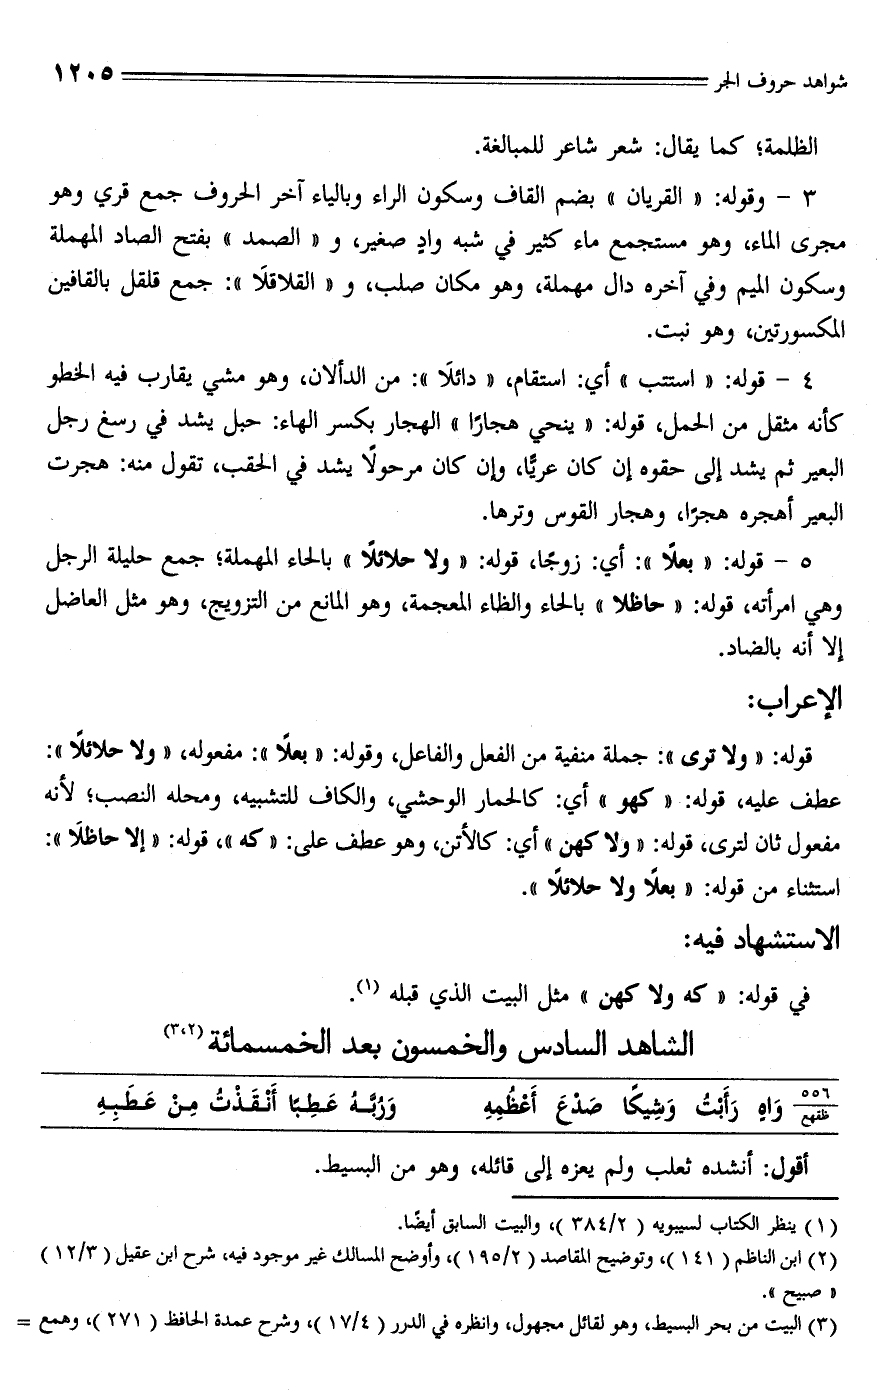 شواهد حروف الجر ١٢٠٥
الظلمة؛ كما يقال: شعر شاعر للمبالغة.
٣ - وقوله: « القريان » بضم القاف وسكون الراء وبالياء آخر الحروف جمع قري وهو
مجرى الماء، وهو مستجمع ماء كثير في شبه وادٍ صغير، و « الصمد » بفتح الصاد المهملة
وسكون الميم وفي آخره دال مهملة، وهو مكان صلب، و « القلاقلَا »: جمع قلقل بالقافين
المكسورتين، وهو نبت.
٤ - قوله: « استتب » أي: استقام، « دائلَا »: من الدألان، وهو مشي يقارب فيه الخطو
كأنه مثقل من الحمل، قوله: « ينحي هجارًا » الهجار بكسر الهاء: حبل يشد في رسغ رجل
البعير ثم يشد إلى حقوه إن كان عريًّا، وإن كان مرحولًا يشد في الحقب، تقول منه: هجرت
البعير أهجره هجرًا، وهجار القوس وترها.
٥ - قوله: « بعلًا »: أي: زوجًا، قوله: « ولا حلائلًا » بالحاء المهملة؛ جمع حليلة الرجل
وهي امرأته، قوله: « حاظلا » بالحاء والظاء المعجمة، وهو المانع من التزويج، وهو مثل العاضل
إلا أنه بالضاد.
الإعراب:
قوله: « ولا ترى »: جملة منفية من الفعل والفاعل، وقوله: « بعلًا »: مفعوله، « ولا حلائلًا »:
عطف عليه، قوله: « كهو » أي: كالحمار الوحشي، والكاف للتشبيه، ومحله النصب؛ لأنه
مفعول ثان لترى، قوله: « ولا كهن » أي: كالأتن، وهو عطف على: « كه »، قوله: « إلا حاظلَا »:
استثناء من قوله: « بعلًا ولا حلائلًا ».
الاستشهاد فيه:
في قوله: « كه ولا كهن » مثل البيت الذي قبله (١).
الشاهد السادس والخمسون بعد الخمسمائة (٣،٢)
٥٥٦ ظقهع وَاهٍ رَأَبْتُ وَشِيكًا صَدْعَ أَعْظُمِهِ وَرُبَّهُ عَطِبًا أَنْقَذْتُ مِنْ عَطَبِهِ
أقول: أنشده ثعلب ولم يعزه إلى قائله، وهو من البسيط.
(١) ينظر الكتاب لسيبويه ( ٣٨٤/٢ )، والبيت السابق أيضًا.
(٢) ابن الناظم ( ١٤١ )، وتوضيح المقاصد ( ١٩٥/٢ )، وأوضح المسالك غير موجود فيه، شرح ابن عقيل ( ١٢/٣ )
« صبيح ».
(٣) البيت من بحر البسيط، وهو لقائل مجهول، وانظره في الدرر ( ١٧/٤ )، وشرح عمدة الحافظ ( ٢٧١ )، وهمع =